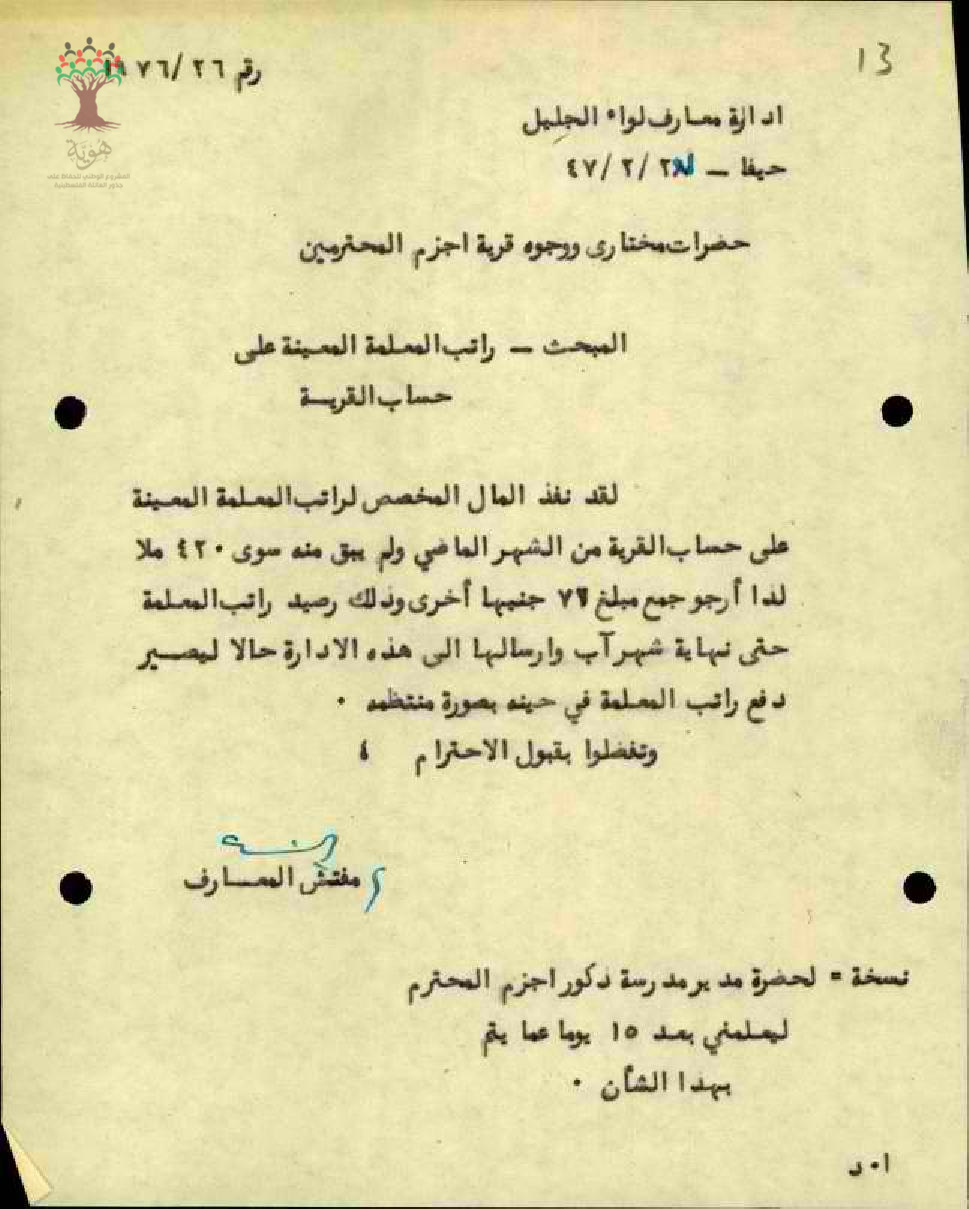 13
رقم ٢٦/ ١٩٧٦
هوية
المشروع الوطني للحفاظ على
جذور العائلة الفلسطينية
ادارة معارف لواء الجليل
حيفا – /٢/ ٤٧
حضرات مختارى ووجوه قرية اجزم المحترمين
المبحث – راتب المعلمة المعينة على
حساب القريــة
لقد نفذ المال المخصص لراتب المعلمة المعينة
على حساب القرية من الشهر الماضي ولم يبق منه سوى ٤٢٠ ملا
لذا أرجو جمع مبلغ ٧٦ جنيها أخرى وذلك رصيد راتب المعلمة
حتى نهاية شهر آب وارسالها الى هذه الادارة حالا ليصــير
دفع راتب المعلمة في حينه بصورة منتظمه ٠
وتفضلوا بقبول الاحترام ٤
مفتش المعــارف
نسخة = لحضرة مدير مدرسة ذكور اجزم المحترم
ليعلمني بعد ١٥ يوما عما يتم
بهذا الشأن ٠
ا٠د